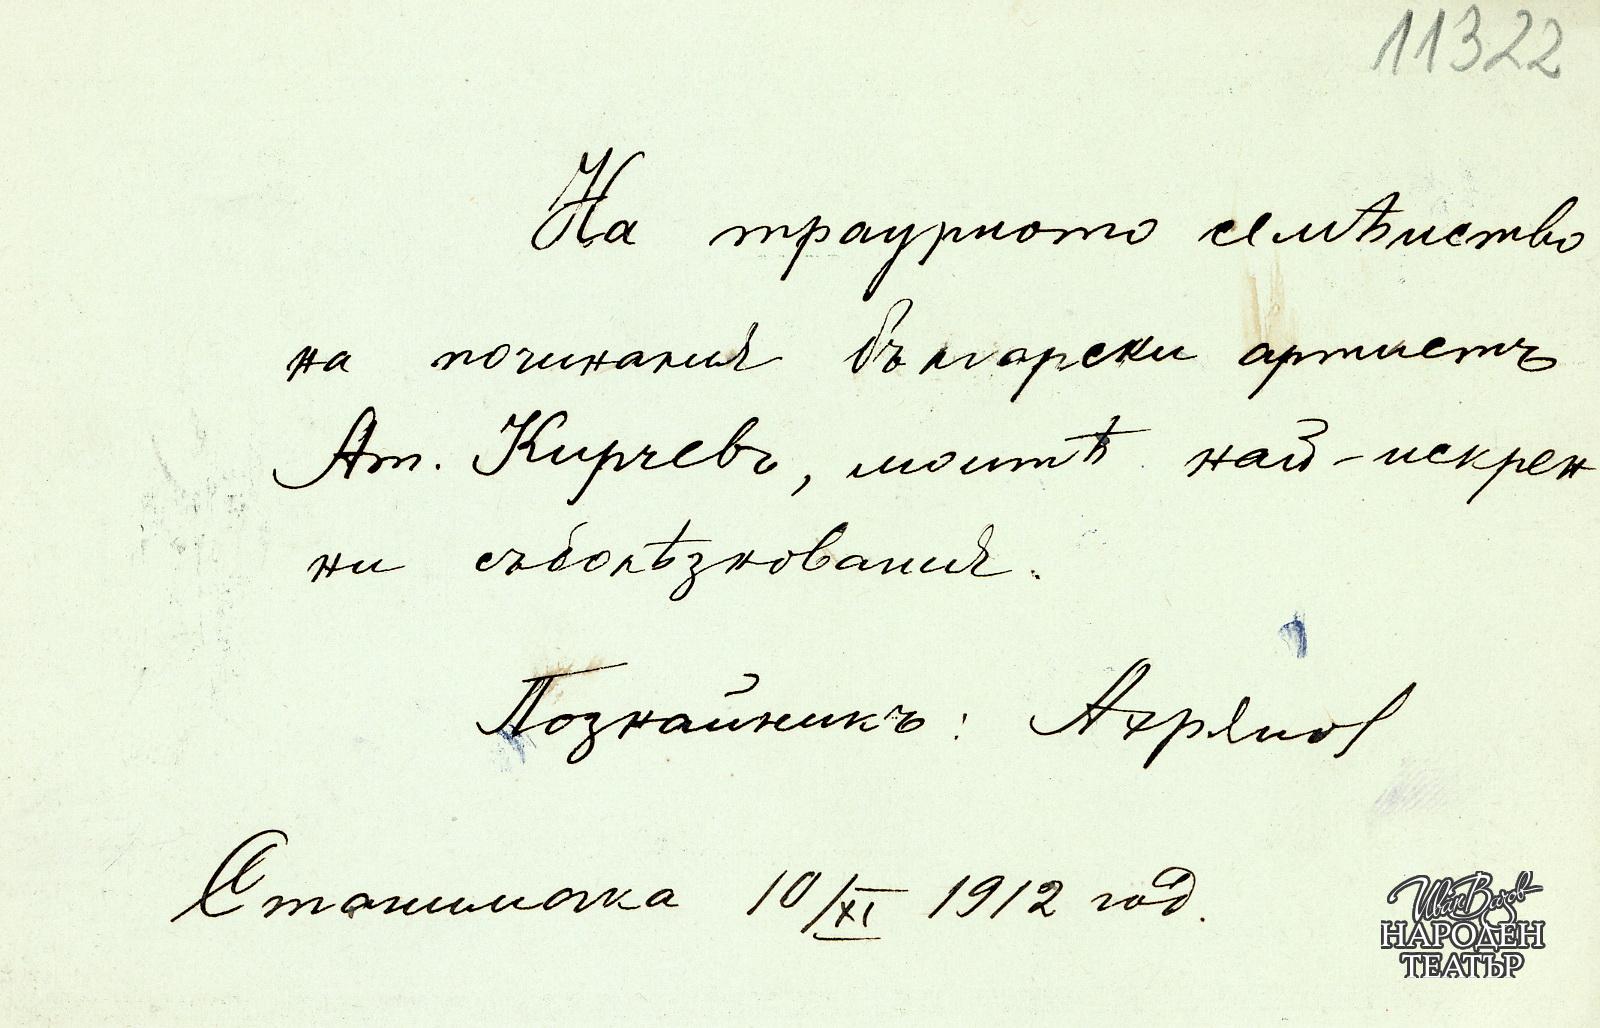 11322
На траурното семѣиство
на починания български артистъ
Ат. Кирчевъ, моитѣ най-искрен
ни съболѣзнования.
Познайникъ: Ахрянов
Станимака 10/XI 1912 год.
Иван Вазов
НАРОДЕН
ТЕАТЪР